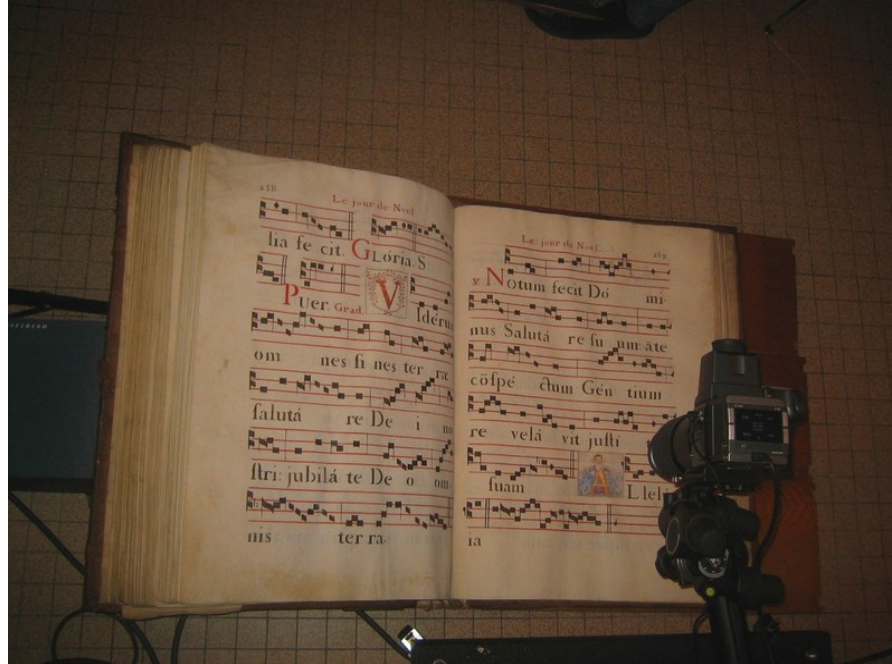 258
Le jour de Noel
lia fe cit. Gloria. S
Puer. Grad. Viderunt
om nes fi nes ter ræ
ſalutá re De i no
ſtri: jubilá te De o om-
nis ter ra-
Le jour de Noel.
259
v. Notum fecit Dó mi
nus Salutá re ſu um: áte
cõſpé ctum Gén tium
re velá vit juſti
ſuam Allelú
ia